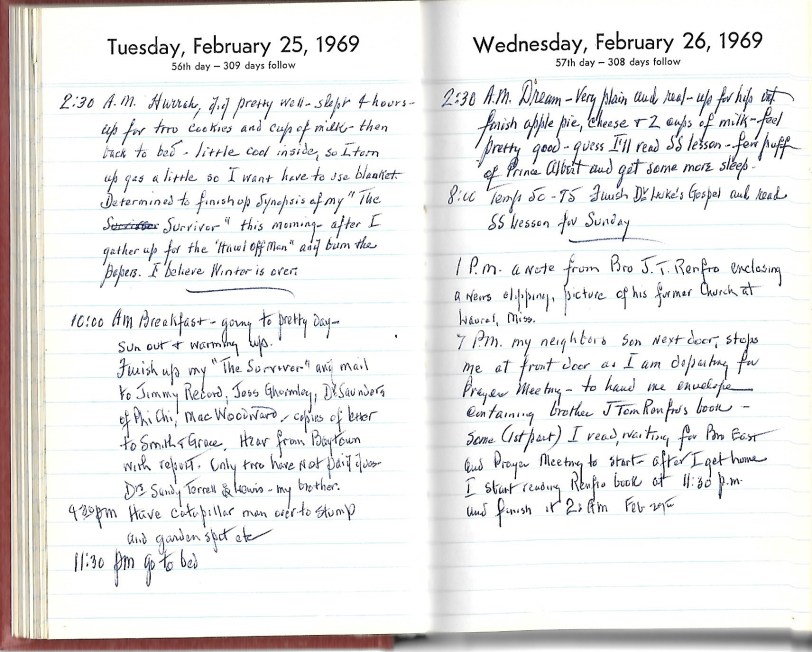 Tuesday, February 25, 1969
56th day – 309 days follow
2:30 A.M. Hurrah, did pretty well - slept 4 hours -
up for two cookies and cup of milk - then
back to bed - little cool inside, so I turn
up gas a little so I want have to use blanket.
Determined to finish up Synopsis of my "The
Survivor" this morning - after I
gather up for the "Hawl Off Man" and burn the
papers. I believe Winter is over.
10:00 AM Breakfast - going to pretty day -
Sun out & warming up.
Finish up my "The Survivor" and mail
to Jimmy Record, Joss Ghormley, Dr Saunders
of Phi Chi, Mac Woodward, copies of letter
to Smith & Grace. Hear from Baytown
with report. Only two have not paid dues
Drs Sandy Terrell & Lewis - my brother.
4:30 pm Have catapillar man over to stump
and garden spot etc
11:30 pm go to bed
Wednesday, February 26, 1969
57th day – 308 days follow
2:30 A.M. Dream - Very plain and real - up for
finish apple pie, cheese & 2 cups of milk - feel
pretty good - guess I'll read SS lesson - few puff
of Prince Albert and get some more sleep.
8:00 Temp 50 - 75 Finish Dr Luke's Gospel and read
SS lesson for Sunday
1 P.m. a note from Bro J. T. Renfro enclosing
a news clipping, picture of his former Church at
Laurel, Miss.
7 P.m. my neighbors son next door, stops
me at front door as I am departing for
Prayer Meeting - to hand me envelope
containing brother J Tom Renfro's book -
Some (1st part) I read, waiting for Bro East
and Prayer Meeting to start - after I get home
I start reading Renfro book at 11:30 p.m.
and finish it 2: AM Feb 27th